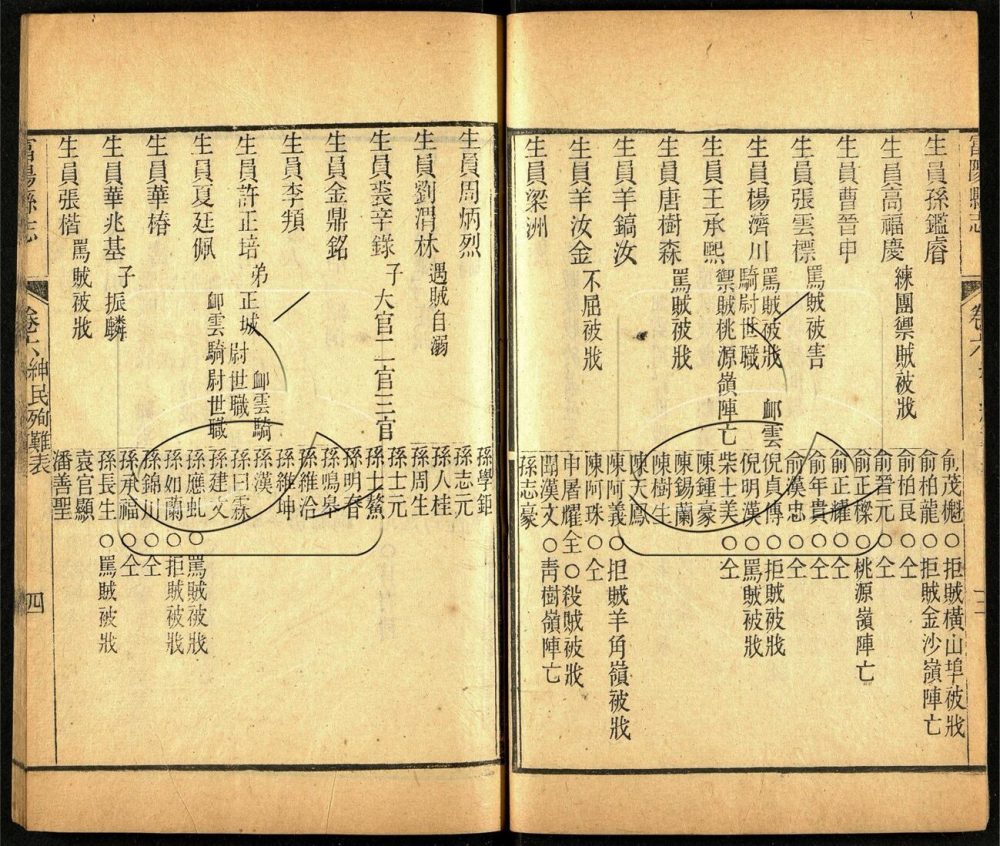 富陽縣志
生員孫鑑睿
生員高福慶 練團禦賊被戕
生員曹晉申
生員張雲標 罵賊被害
生員楊濟川 罵賊被戕 卹雲騎尉世職
生員王承熙 禦賊桃源嶺陣亡
生員唐樹森 罵賊被戕
生員羊鎬汝
生員羊汝金 不屈被戕
生員梁洲
俞茂樾○拒賊橫山埠被戕
俞柏龍○拒賊金沙嶺陣亡
俞柏艮○仝
俞晉元○仝
俞正樑○桃源嶺陣亡
俞正耀○仝
俞年貴○仝
俞漢忠○仝
倪貞傳○拒賊被戕
倪明漢○罵賊被戕
柴士美○仝
陳鍾豪
陳錫蘭
陳樹生
陳天鳳
陳阿義○拒賊羊角嶺被戕
陳阿珠○仝
申屠耀全○殺賊被戕
聞漢文○青樹嶺陣亡
孫志豪
生員周炳烈
生員劉渭林 遇賊自溺
生員裘辛錄 子大官二官三官
生員金鼎銘
生員李頖
生員許正培 弟正城 卹雲騎尉世職
生員夏廷佩 卹雲騎尉世職
生員華椿
生員華兆基 子振麟
生員張楷 罵賊被戕
孫學鉅
孫志元
孫人桂
孫周生
孫士元
孫士鰲
孫明春
孫鳴皋
孫維洽
孫維坤
孫漢
孫日霖
孫建文
孫應虬○罵賊被戕
孫如蘭○拒賊被戕
孫錦川○仝
孫承福○仝
孫長生○罵賊被戕
袁官顯
潘善聖
富陽縣志 卷六 紳民殉難表 四